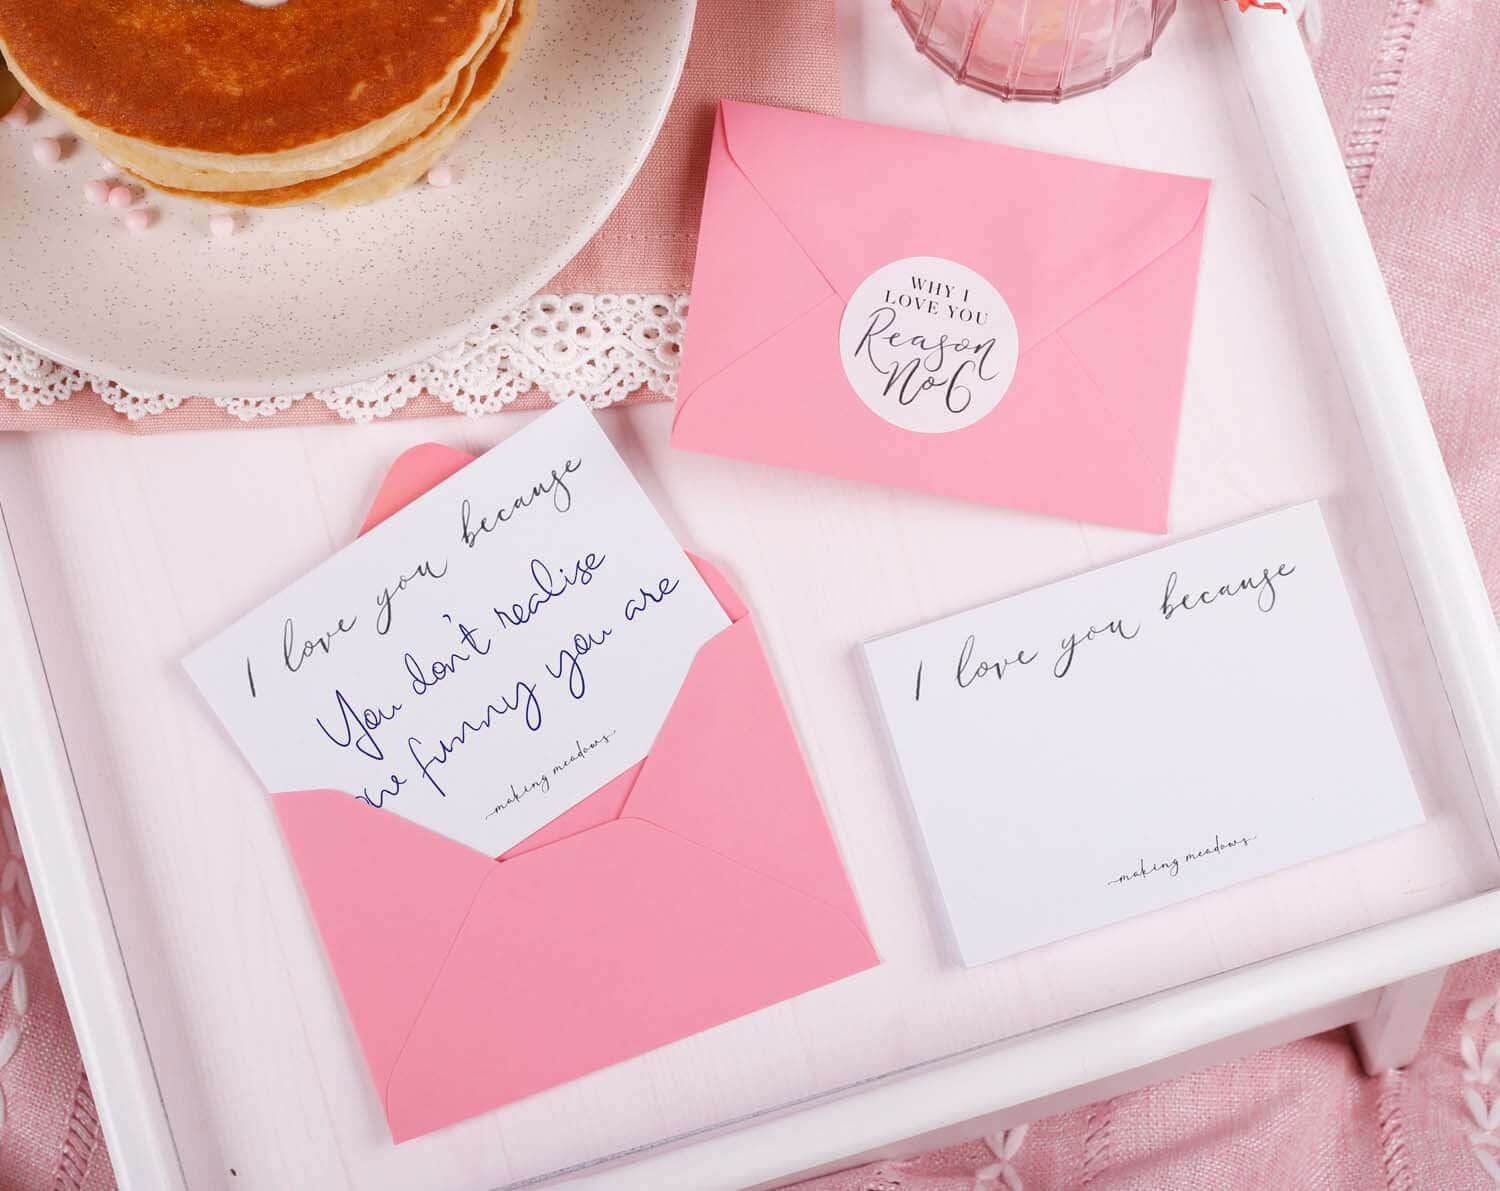 WHY I
LOVE YOU
Reason
No6
I love you because
You don't realise
how funny you are
making meadows
I love you because
making meadows